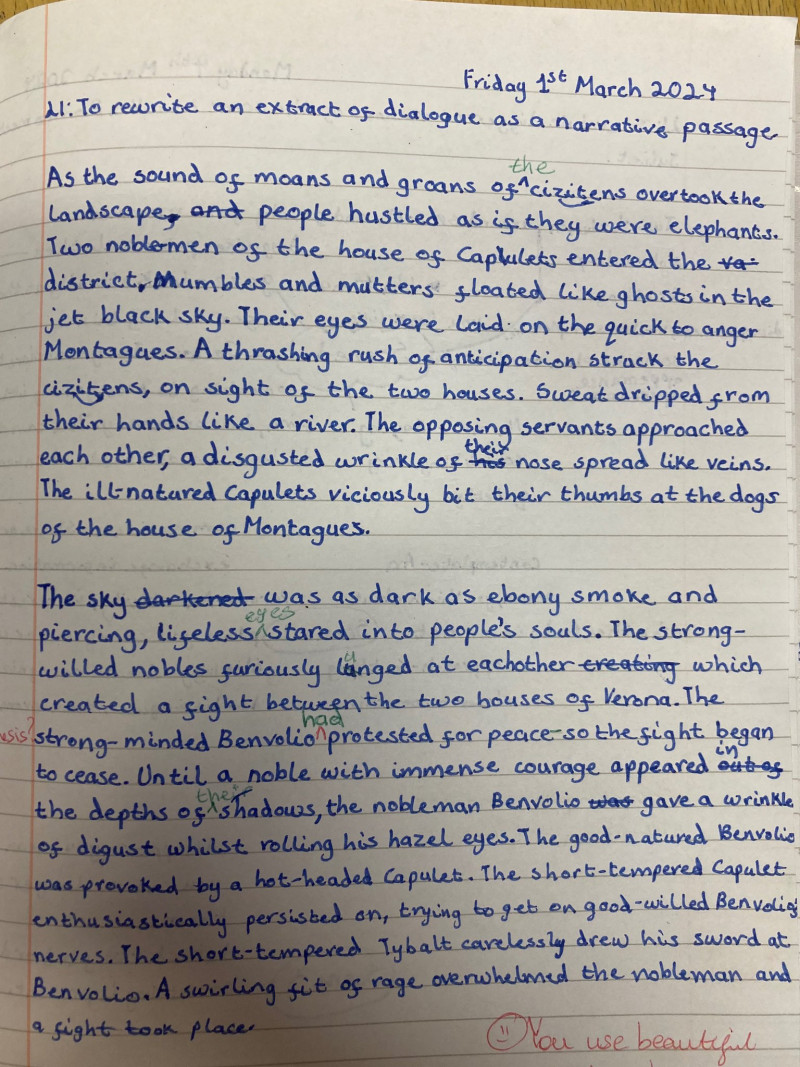 Friday 1st March 2024
LI: To rewrite an extract of dialogue as a narrative passage.
the
As the sound of moans and groans of ^ cizitens overtook the
landscape, and people hustled as if they were elephants.
Two noblemen of the house of Caplulets entered the va-
district. Mumbles and mutters floated like ghosts in the
jet black sky. Their eyes were laid on the quick to anger
Montagues. A thrashing rush of anticipation struck the
cizitens, on sight of the two houses. Sweat dripped from
their hands like a river. The opposing servants approached
their
each other, a disgusted wrinkle of his nose spread like veins.
The ill-natured Capulets viciously bit their thumbs at the dogs
of the house of Montagues.
The sky darkened was as dark as ebony smoke and
eyes
piercing, lifeless ^ stared into people's souls. The strong-
willed nobles furiously lunged at eachother creating which
created a fight between the two houses of Verona. The
had
strong-minded Benvolio ^ protested for peace-so the fight began
in
to cease. Until a noble with immense courage appeared out of
their
the depths of ^ shadows, the nobleman Benvolio was gave a wrinkle
of digust whilst rolling his hazel eyes. The good-natured Benvolio
was provoked by a hot-headed Capulet. The short-tempered Capulet
enthusiastically persisted on, trying to get on good-willed Benvolio's
nerves. The short-tempered Tybalt carelessly drew his sword at
Benvolio. A swirling fit of rage overwhelmed the nobleman and
a fight took place.
You use beautiful